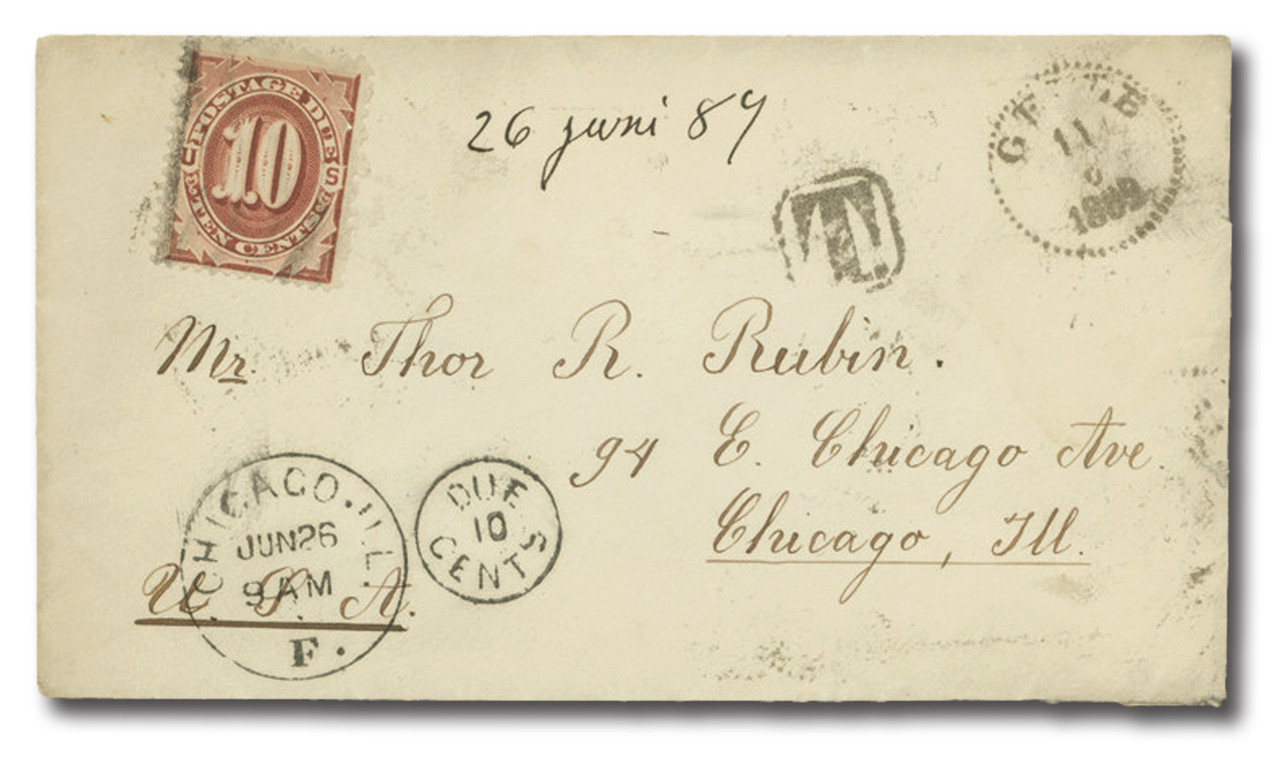 POSTAGE DUE
10
TEN CENTS
U S
26 juni 89
T
11
6
1889
Mr. Thor R. Rubin.
94 E. Chicago Ave.
Chicago, Ill.
U. S. A.
CHICAGO. ILL.
JUN 26
9 AM
F.
DUE
10
CENTS